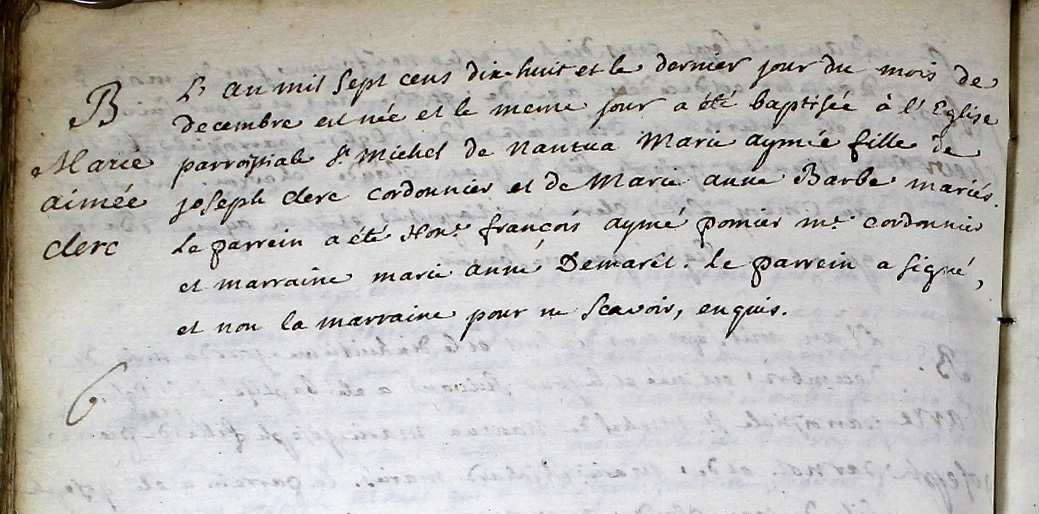 B
Marie
aimée
clerc
L'an mil sept cens dix-huit et le dernier jour du mois de
decembre est née et le meme jour a été baptisée à l'Eglise
parroissiale St Michel de Nantua Marie aymée fille de
joseph clerc cordonnier et de Marie anne Barbe mariés.
Le parrein a été Hone. françois aymé pomier me. cordonnier
et marraine marie anne Demarêt. Le parrein a signé,
et non la marraine pour ne scavoir, enquis.
6